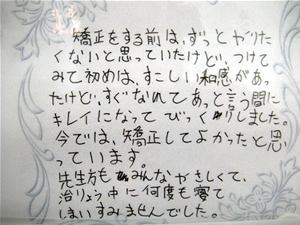 矯正をする前は、ずっとやりた
くないと思っていたけど、つけて
みて初めは、すこし違和感があっ
たけど、すぐなれてあっと言う間に
キレイになってびっくりしました。
今では、矯正してよかったと思
っています。
先生方もみんなやさしくて、
治りょう中に何度も寝て
しまいすみませんでした。